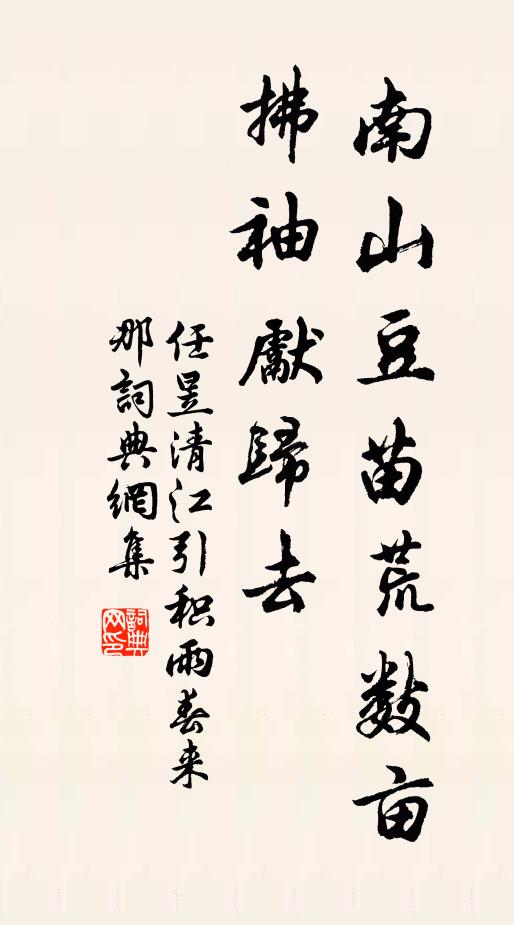 南山豆苗荒數亩
拂袖獻歸去
任昱清江引积雨春来
那詞典網集
詞典
网印